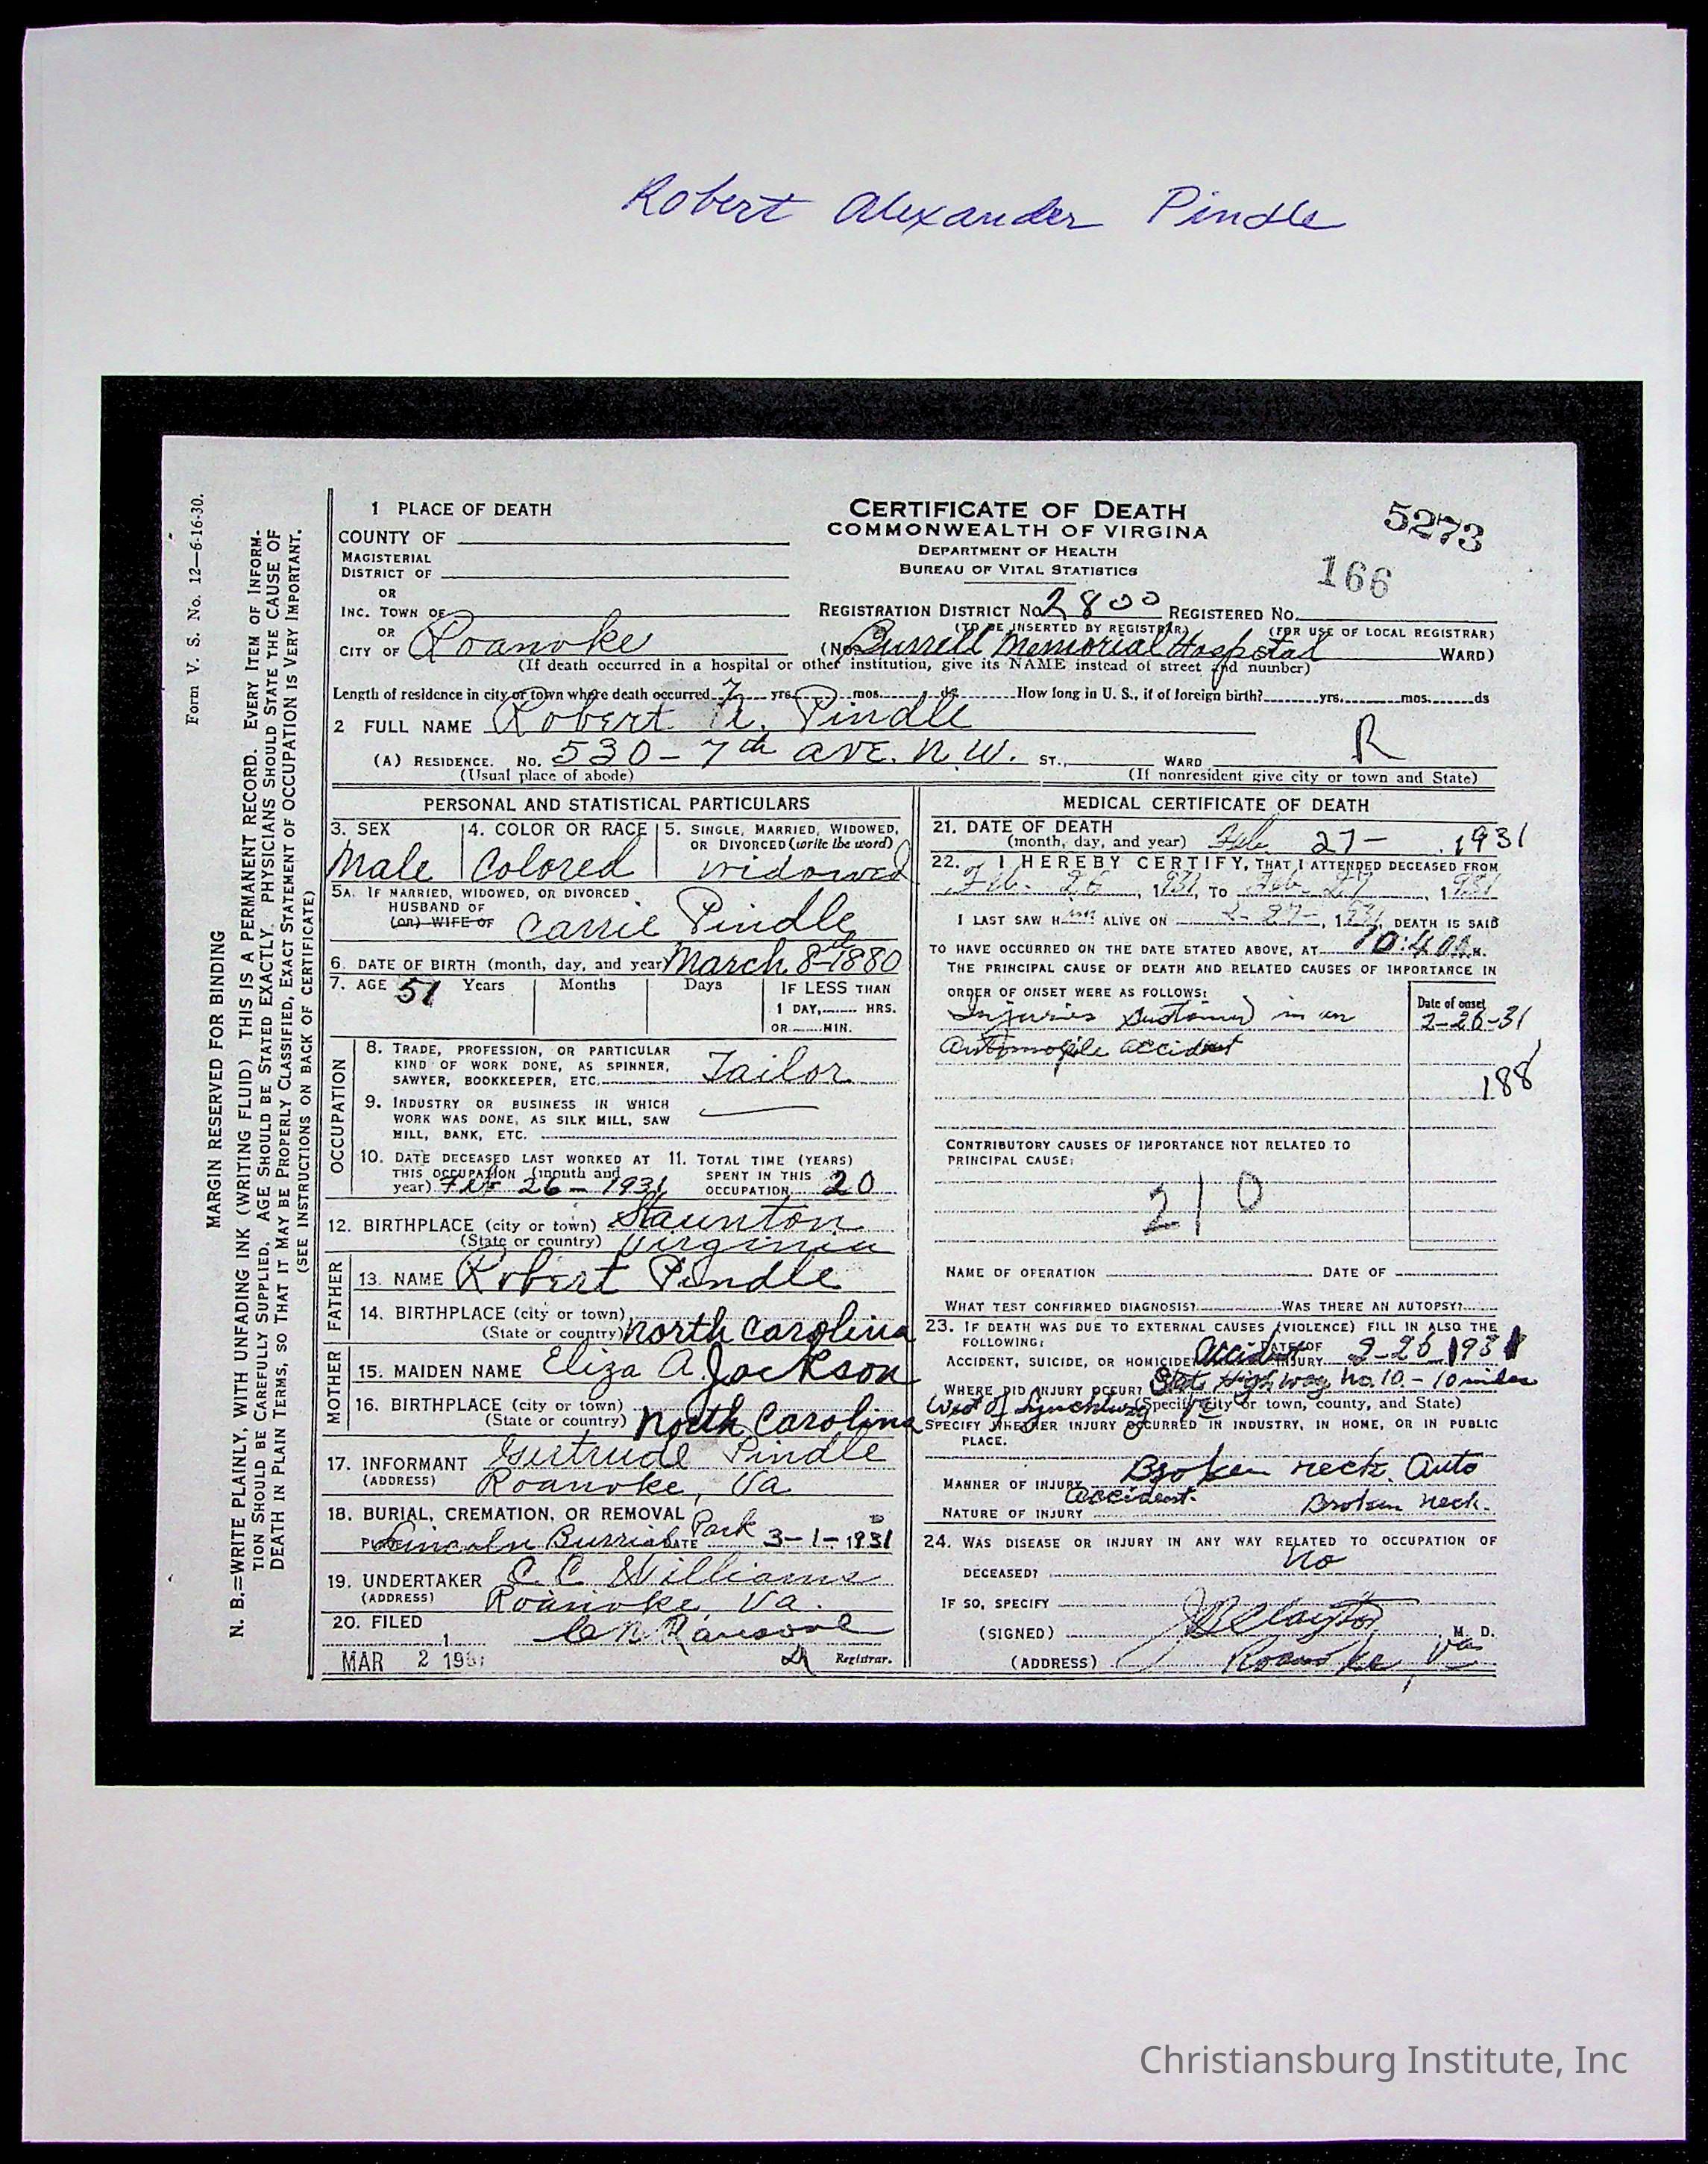 Robert Alexander Pindle
Form V. S. No. 12—6-16-30.
MARGIN RESERVED FOR BINDING
N. B.=WRITE PLAINLY, WITH UNFADING INK (WRITING FLUID) THIS IS A PERMANENT RECORD. EVERY ITEM OF INFORM-
TION SHOULD BE CAREFULLY SUPPLIED. AGE SHOULD BE STATED EXACTLY. PHYSICIANS SHOULD STATE THE CAUSE OF
DEATH IN PLAIN TERMS, SO THAT IT MAY BE PROPERLY CLASSIFIED, EXACT STATEMENT OF OCCUPATION IS VERY IMPORTANT.
(SEE INSTRUCTIONS ON BACK OF CERTIFICATE)
1 PLACE OF DEATH
COUNTY OF
MAGISTERIAL
DISTRICT OF
OR
INC. TOWN OF
OR
CITY OF Roanoke
CERTIFICATE OF DEATH
COMMONWEALTH OF VIRGINA
DEPARTMENT OF HEALTH
BUREAU OF VITAL STATISTICS
5273
166
REGISTRATION DISTRICT No. 2800 REGISTERED No.
(TO BE INSERTED BY REGISTRAR) (FOR USE OF LOCAL REGISTRAR)
(No. Burrell Memorial Hospital WARD)
(If death occurred in a hospital or other institution, give its NAME instead of street and number)
Length of residence in city or town where death occurred 7 yrs. mos. ds. How long in U. S., if of foreign birth? yrs. mos. ds
2 FULL NAME Robert A. Pindle
(A) RESIDENCE. No. 530 - 7th ave. N.W. ST., WARD R
(Usual place of abode) (If nonresident give city or town and State)
PERSONAL AND STATISTICAL PARTICULARS
3. SEX 4. COLOR OR RACE 5. SINGLE, MARRIED, WIDOWED,
OR DIVORCED (write the word)
Male Colored widowed
5A. IF MARRIED, WIDOWED, OR DIVORCED
HUSBAND OF
(OR) WIFE OF Carrie Pindle
6. DATE OF BIRTH (month, day, and year) March 8-1880
7. AGE 51 Years Months Days IF LESS THAN
1 DAY, HRS.
OR MIN.
OCCUPATION
8. TRADE, PROFESSION, OR PARTICULAR
KIND OF WORK DONE, AS SPINNER,
SAWYER, BOOKKEEPER, ETC. Tailor
9. INDUSTRY OR BUSINESS IN WHICH
WORK WAS DONE, AS SILK MILL, SAW
MILL, BANK, ETC.
10. DATE DECEASED LAST WORKED AT 11. TOTAL TIME (YEARS)
THIS OCCUPATION (month and SPENT IN THIS
year) Feb 26 - 1931 OCCUPATION 20
12. BIRTHPLACE (city or town) Staunton
(State or country) Virginia
FATHER
13. NAME Robert Pindle
14. BIRTHPLACE (city or town)
(State or country) North Carolina
MOTHER
15. MAIDEN NAME Eliza A. Jackson
16. BIRTHPLACE (city or town)
(State or country) North Carolina
17. INFORMANT Gertrude Pindle
(ADDRESS) Roanoke, Va
18. BURIAL, CREMATION, OR REMOVAL
Lincoln Burrial Park DATE 3-1-1931
19. UNDERTAKER C. C. Williams
(ADDRESS) Roanoke, Va.
20. FILED
MAR 2 1931 Registrar.
MEDICAL CERTIFICATE OF DEATH
21. DATE OF DEATH
(month, day, and year) Feb 27- 1931
22. I HEREBY CERTIFY, THAT I ATTENDED DECEASED FROM
Feb. 26, 1931, TO Feb. 27 1931
I LAST SAW Him ALIVE ON 2-27-, 1931, DEATH IS SAID
TO HAVE OCCURRED ON THE DATE STATED ABOVE, AT 10:40 M.
THE PRINCIPAL CAUSE OF DEATH AND RELATED CAUSES OF IMPORTANCE IN
ORDER OF ONSET WERE AS FOLLOWS: Date of onset
Injuries sustained in an 2-26-31
automobile accident
188
CONTRIBUTORY CAUSES OF IMPORTANCE NOT RELATED TO
PRINCIPAL CAUSE:
210
NAME OF OPERATION DATE OF
WHAT TEST CONFIRMED DIAGNOSIS? WAS THERE AN AUTOPSY?
23. IF DEATH WAS DUE TO EXTERNAL CAUSES (VIOLENCE) FILL IN ALSO THE
FOLLOWING:
ACCIDENT, SUICIDE, OR HOMICIDE? Accident DATE OF INJURY 2-26 1931
WHERE DID INJURY OCCUR? State Highway No. 10 - 10 miles
West of Lynchburg Va (Specify city or town, county, and State)
SPECIFY WHETHER INJURY OCCURRED IN INDUSTRY, IN HOME, OR IN PUBLIC
PLACE.
MANNER OF INJURY Broken neck. Auto
accident.
NATURE OF INJURY Broken neck.
24. WAS DISEASE OR INJURY IN ANY WAY RELATED TO OCCUPATION OF
DECEASED? No
IF SO, SPECIFY
(SIGNED) J B Claytor, M. D.
(ADDRESS) Roanoke, Va
Christiansburg Institute, Inc